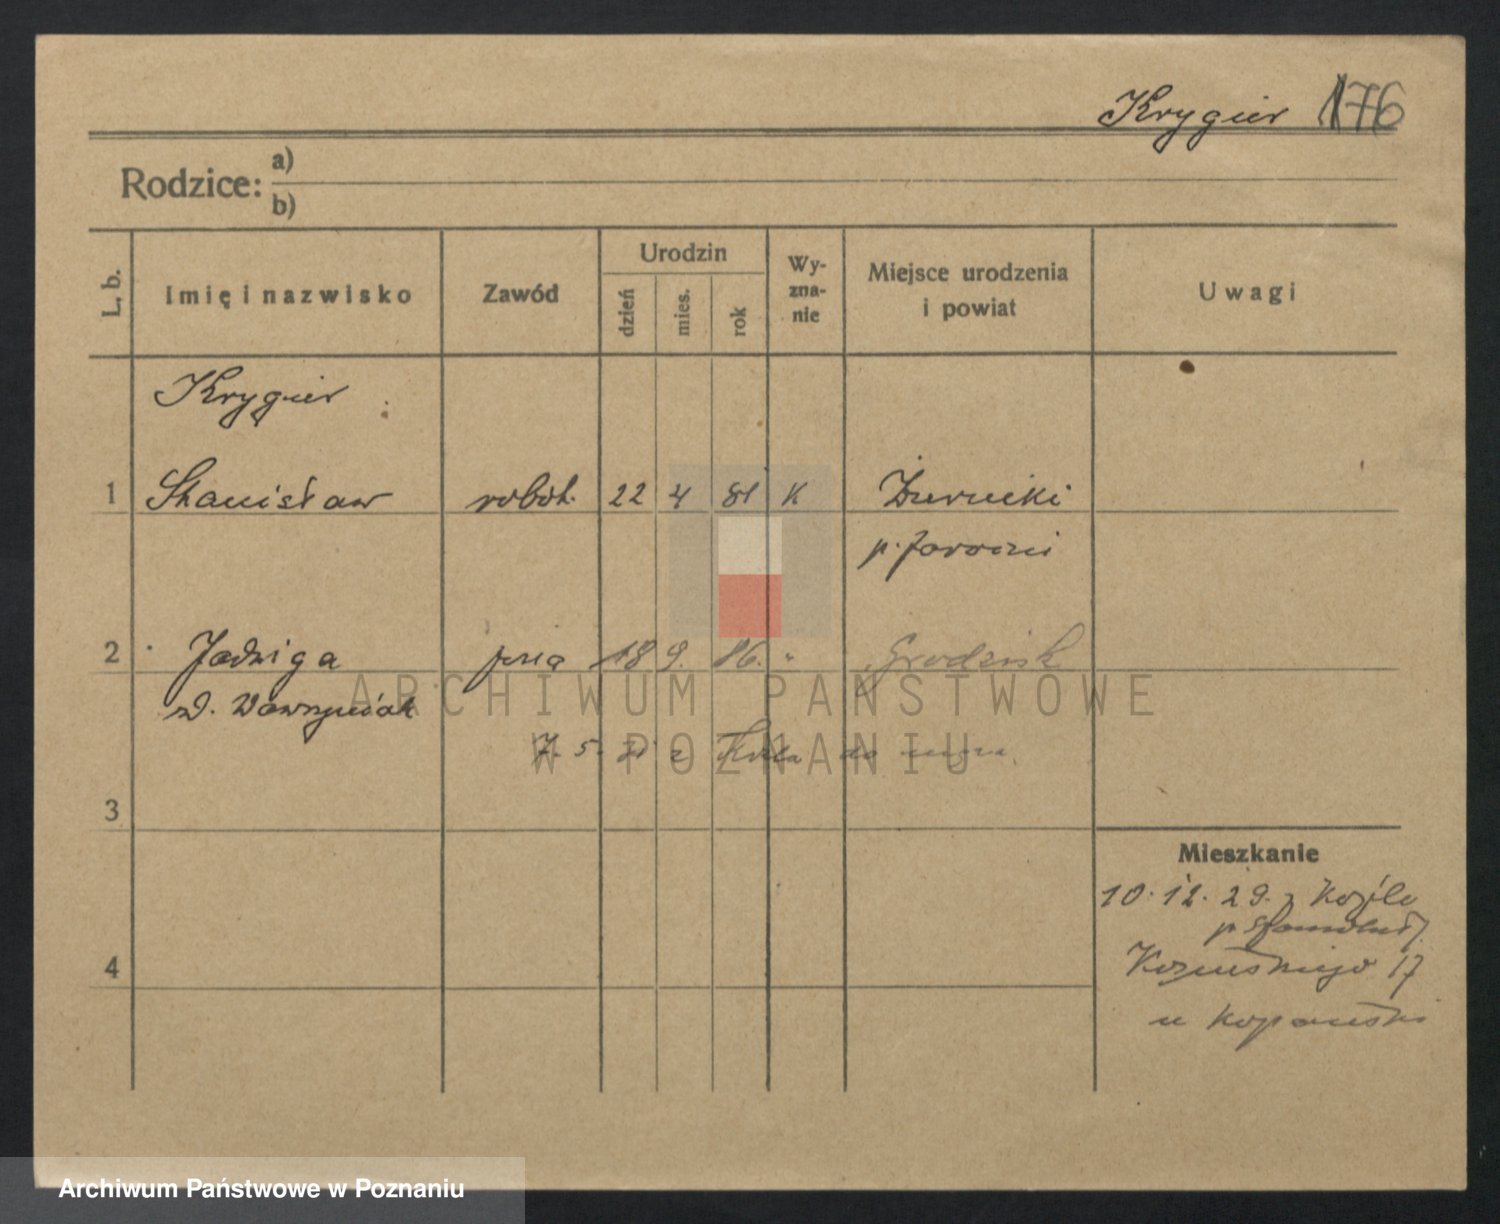 Krygier 176
Rodzice: a)
b)
L. b.
Imię i nazwisko
Zawód
Urodzin
dzień
mies.
rok
Wy-
zna-
nie
Miejsce urodzenia
i powiat
Uwagi
Krygier
1 Stanisław robot. 22 4 81 K Żerniki
p. Jarocin
2 Jadwiga 18 9. 86. " Grodzisk
ARCHIWUM PAŃSTWOWE
W POZNANIU
7. 5. 31 z do
3
Mieszkanie
10. 12. 29. z Koźle
p
4
17
u
Archiwum Państwowe w Poznaniu